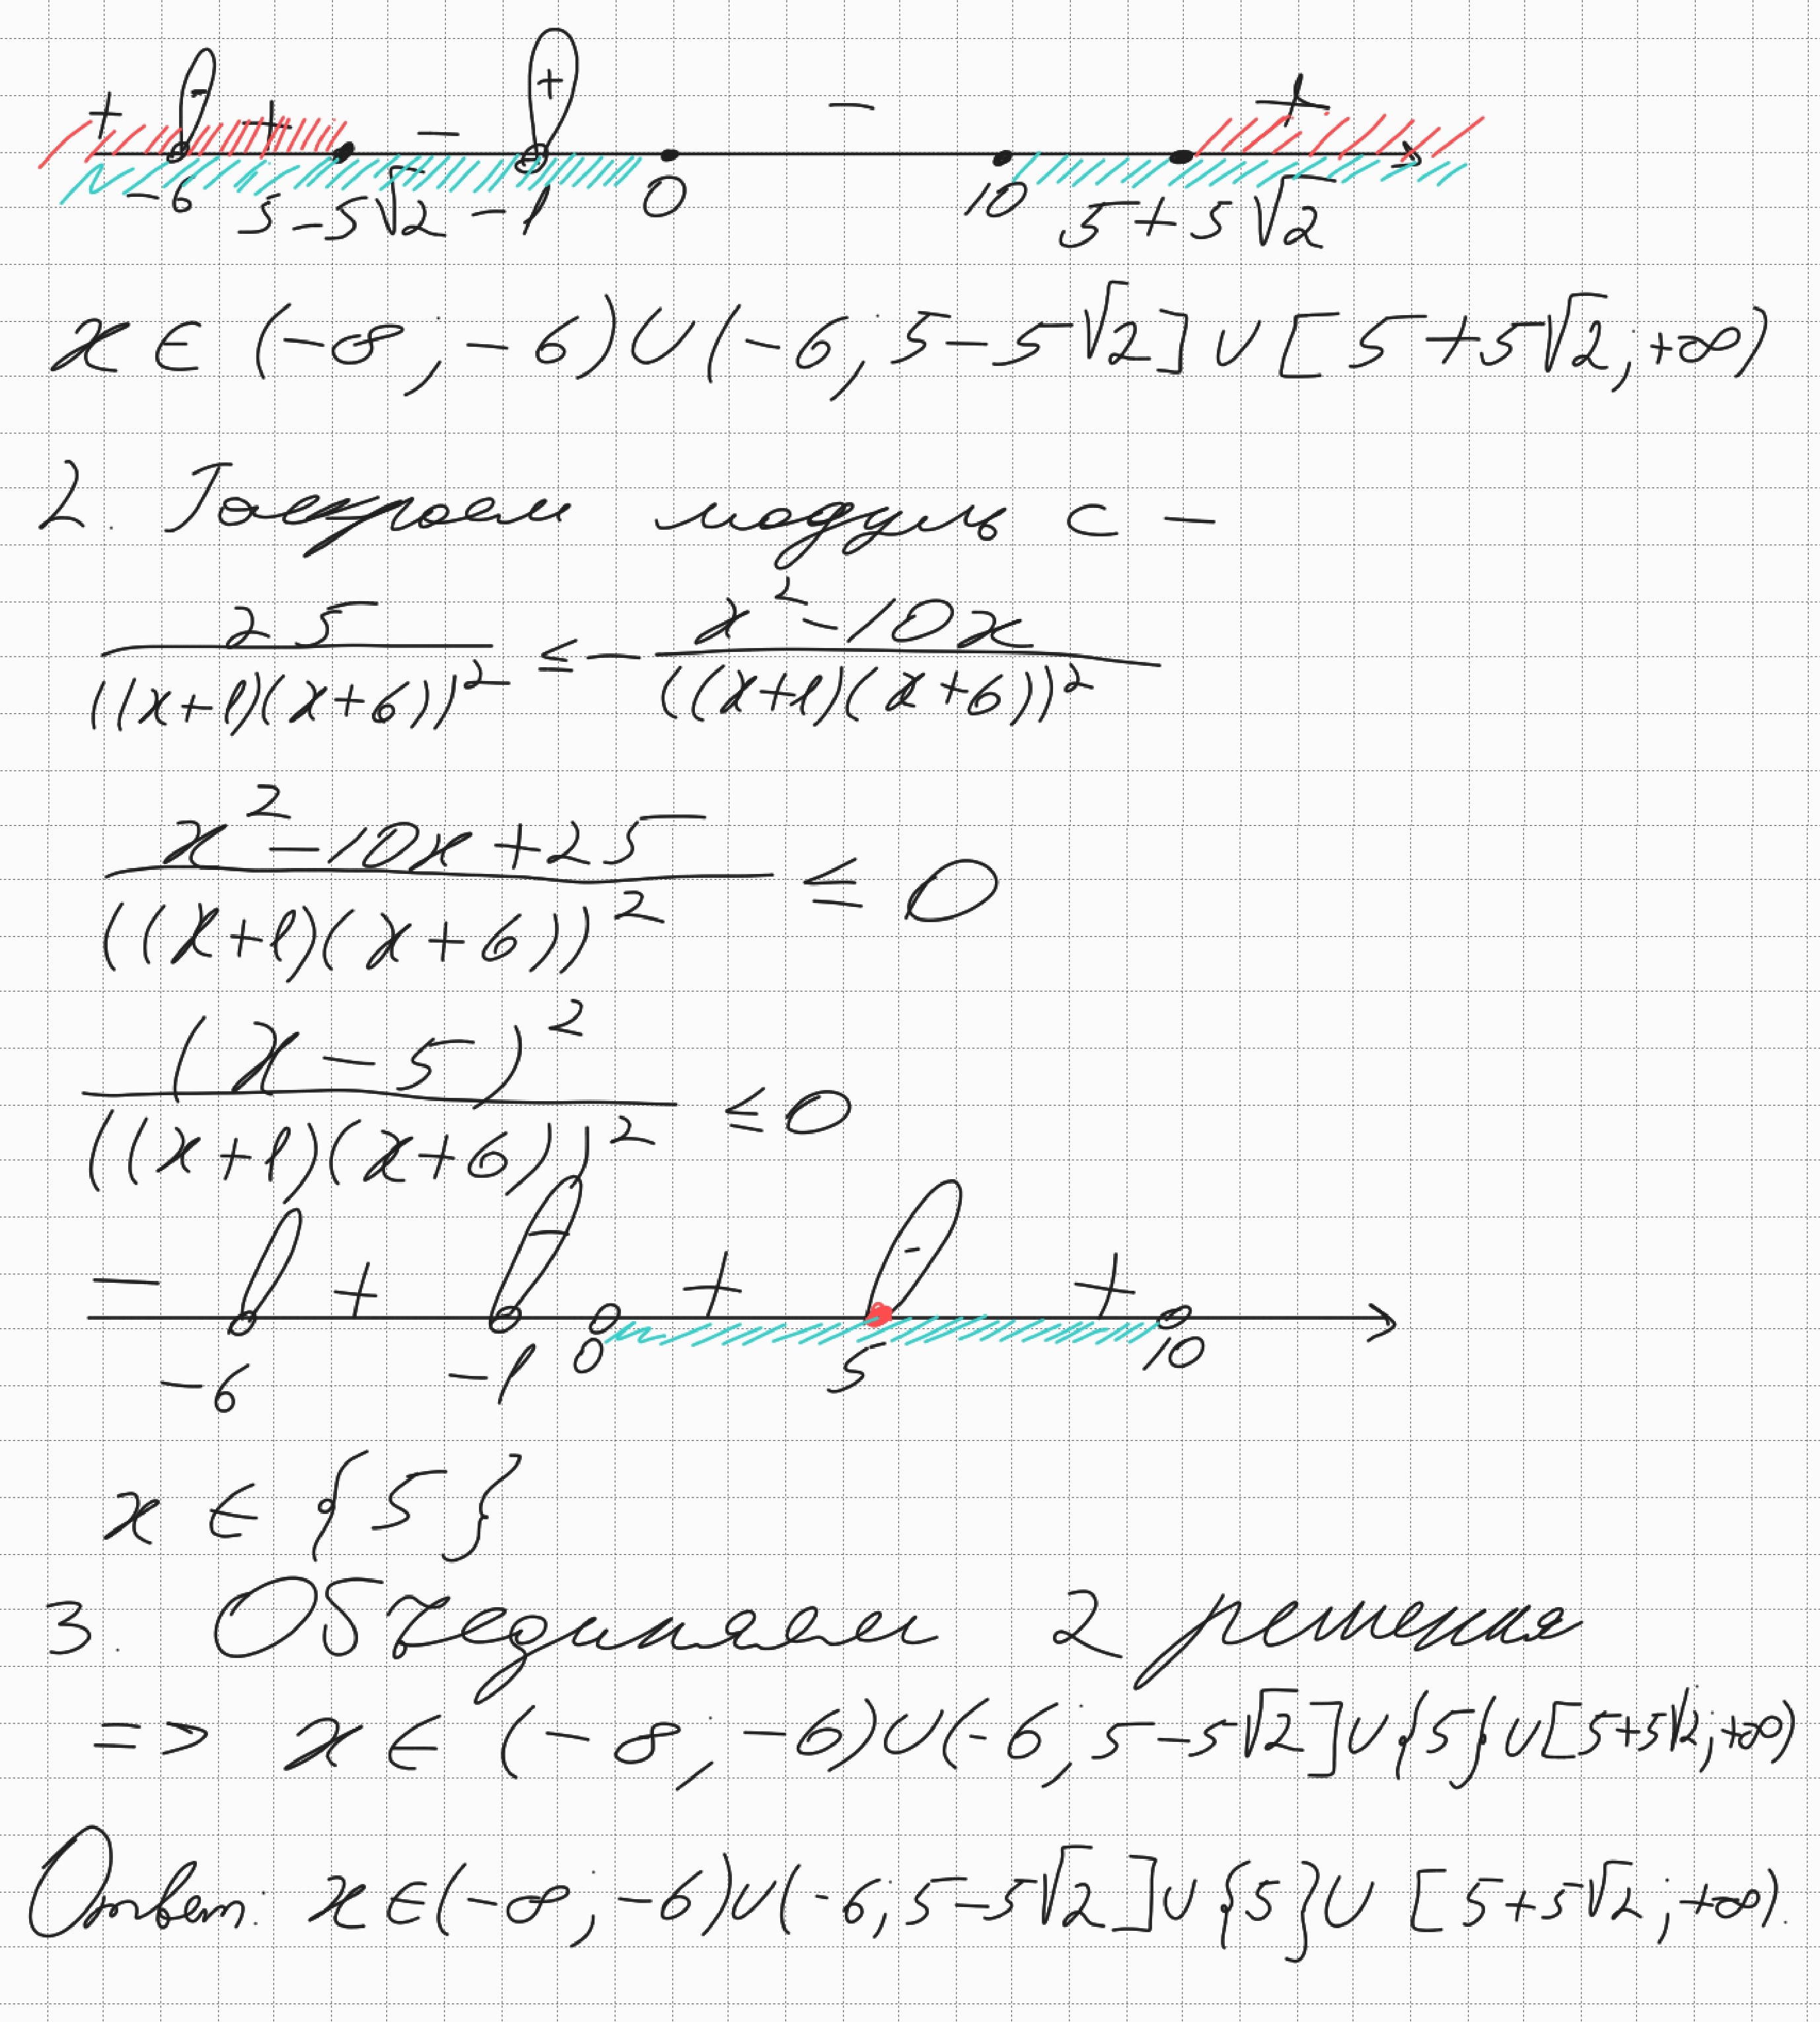 + - + - + - +
-6 5-5√2 -1 0 10 5+5√2
x ∈ (-∞; -6) ∪ (-6; 5-5√2] ∪ [5+5√2; +∞)
2. Раскроем модуль с -
25/((x+1)(x+6))² ≤ - (x²-10x)/((x+1)(x+6))²
(x²-10x+25)/((x+1)(x+6))² ≤ 0
(x-5)²/((x+1)(x+6))² ≤ 0
- + - + - +
-6 -1 0 5 10
x ∈ {5}
3. Объединяем 2 решения
=> x ∈ (-∞; -6) ∪ (-6; 5-5√2] ∪ {5} ∪ [5+5√2; +∞)
Ответ: x ∈ (-∞; -6) ∪ (-6; 5-5√2] ∪ {5} ∪ [5+5√2; +∞).